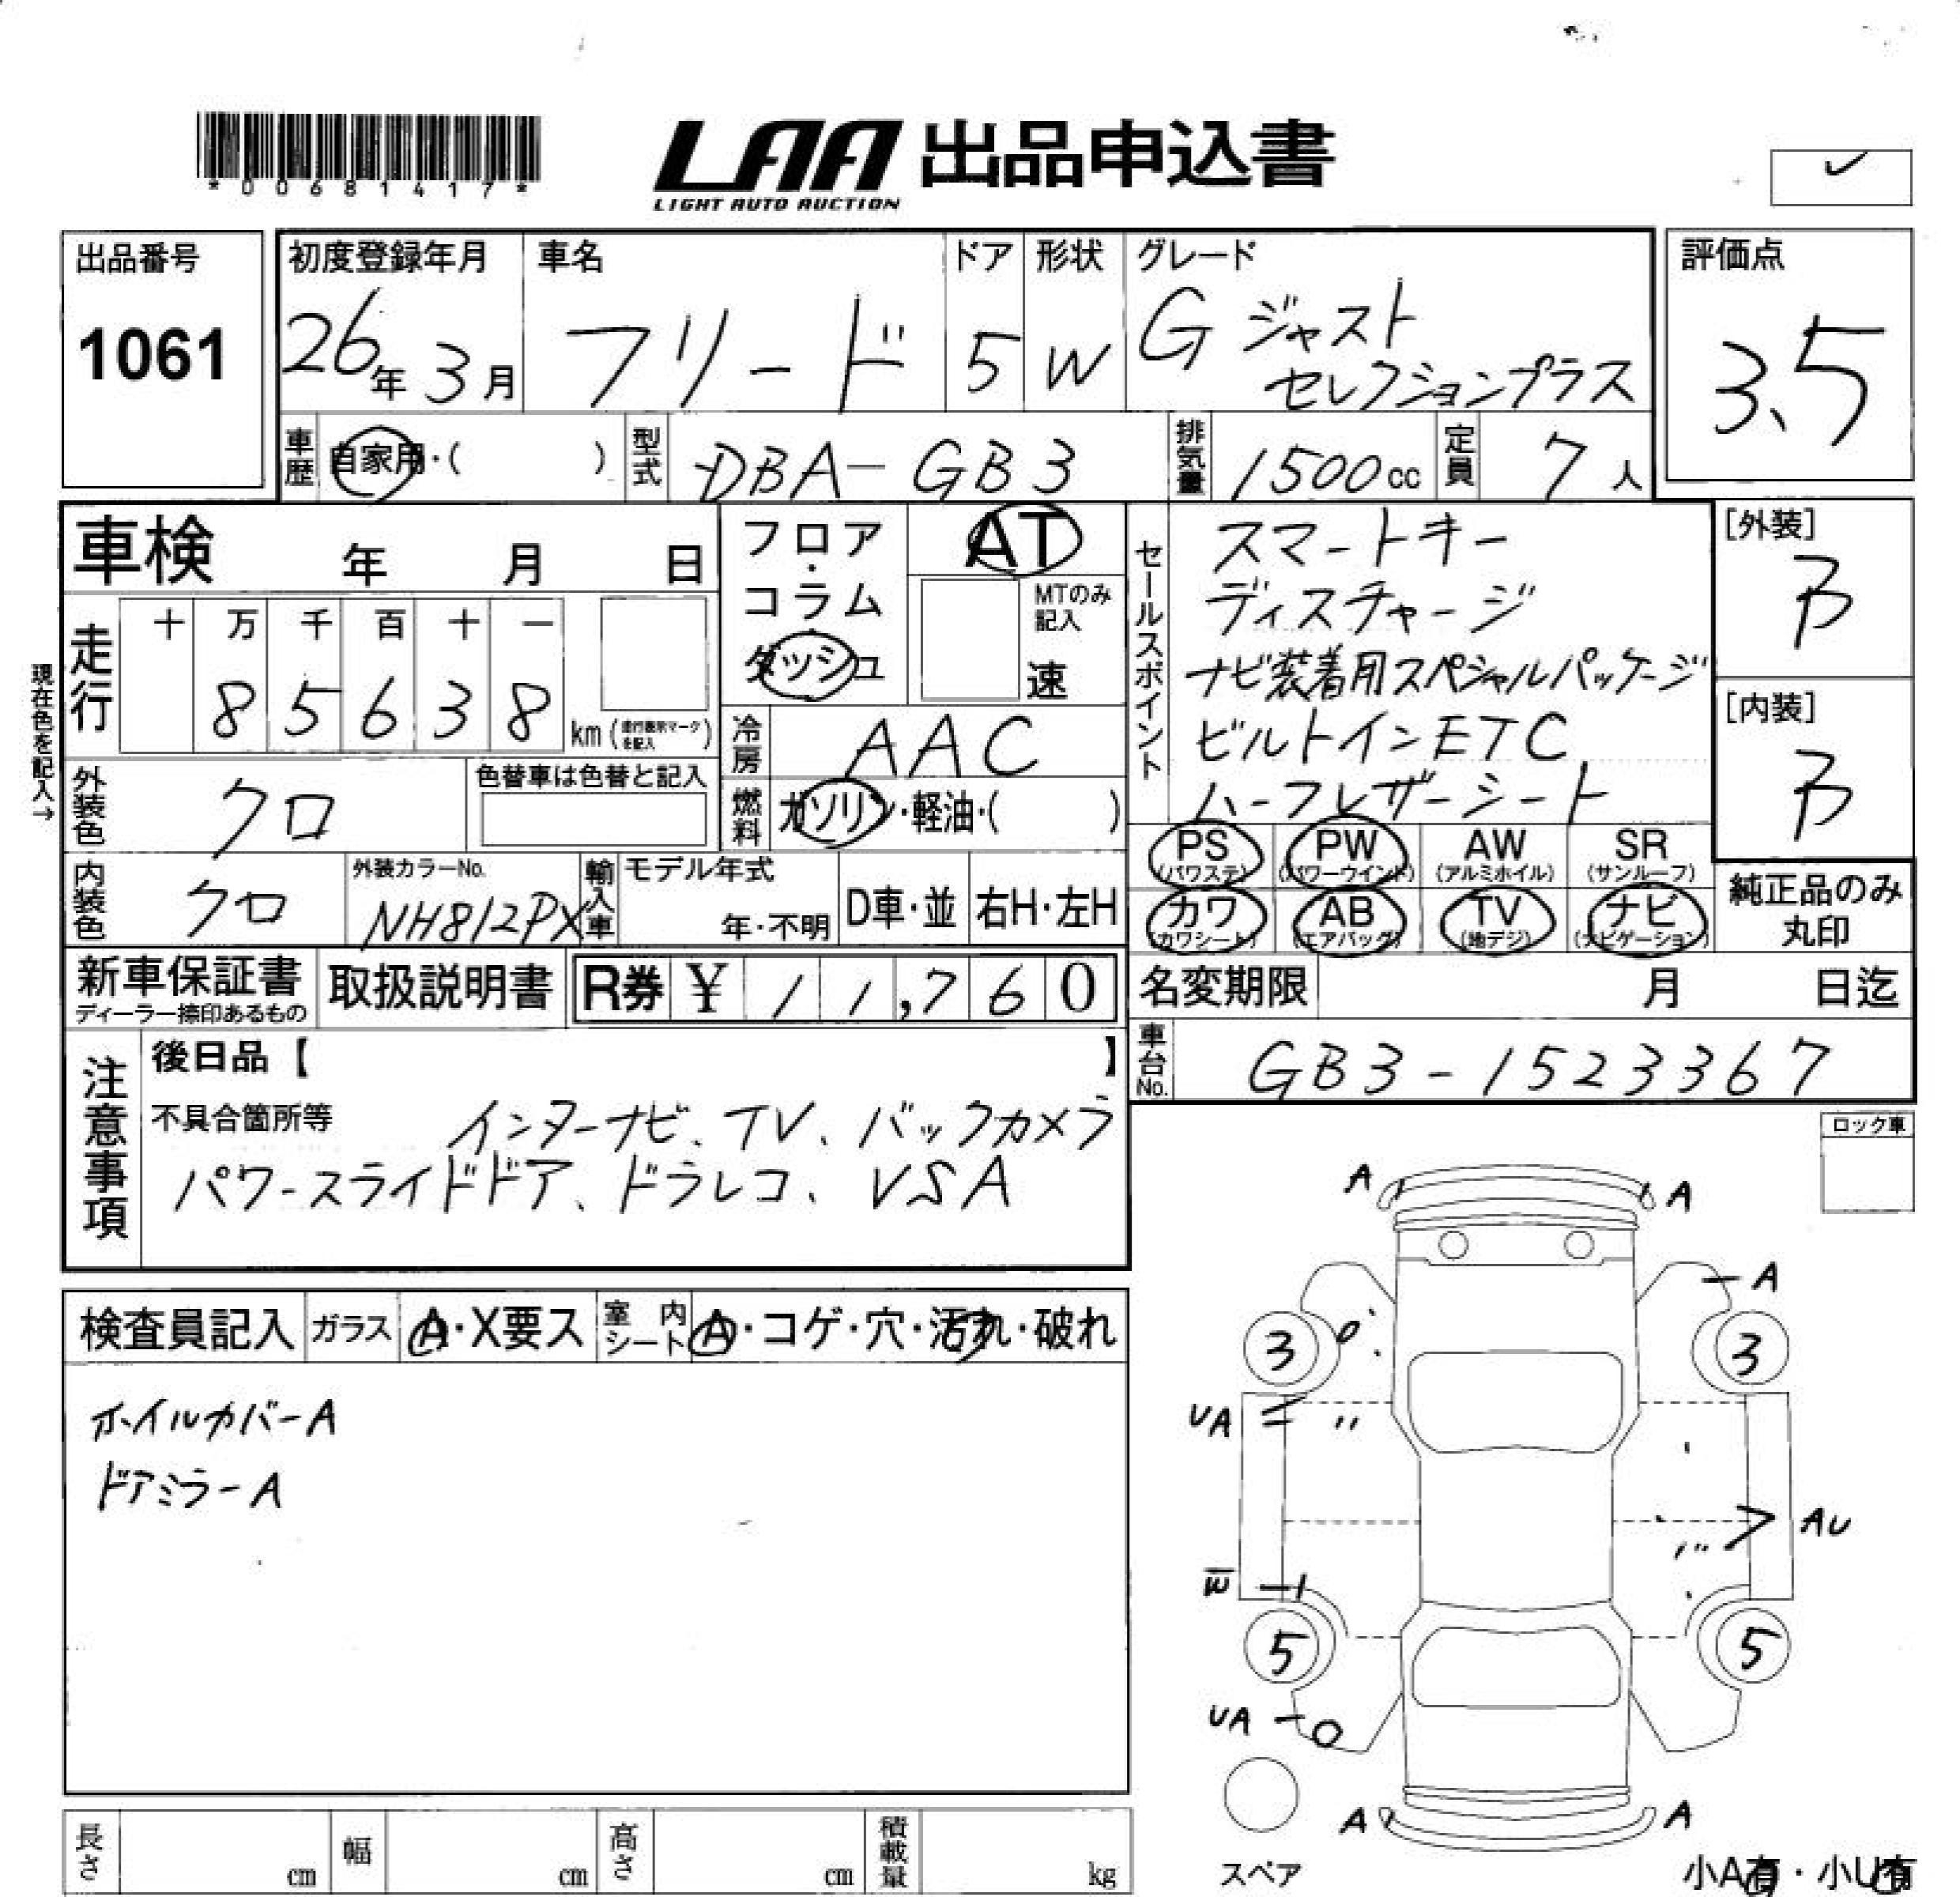 *00681417*
LAA 出品申込書
LIGHT AUTO AUCTION
出品番号
1061
初度登録年月
26年3月
車名
フリード
ドア
5
形状
W
グレード
G ジャスト
セレクションプラス
評価点
3.5
車歴 自家用・( )
型式 DBA-GB3
排気量 1500cc
定員 7人
車検 年 月 日
走行 十 万 千 百 十 一
8 5 6 3 8 km (走行表示マークを記入)
現在色を記入→
フロア・コラム
ダッシュ
AT
MTのみ記入
速
冷房 AAC
燃料 ガソリン・軽油・( )
セールスポイント
スマートキー
ディスチャージ
ナビ装着用スペシャルパッケージ
ビルトインETC
ハーフレザーシート
[外装]
[内装]
外装色 クロ
色替車は色替と記入
内装色 クロ
外装カラーNo.
NH812PX
輸入車
モデル年式
年・不明
D車・並
右H・左H
PS (パワステ)
PW (パワーウインド)
AW (アルミホイル)
SR (サンルーフ)
カワ (カワシート)
AB (エアバッグ)
TV (地デジ)
ナビ (ナビゲーション)
純正品のみ
丸印
新車保証書
ディーラー捺印あるもの
取扱説明書
R券 ¥ 11,760
名変期限 月 日迄
車台No. GB3-1523367
注意事項
後日品【 】
不具合箇所等
インターナビ、TV、バックカメラ
パワースライドドア、ドラレコ、VSA
ロック車
検査員記入
ガラス A・X要ス
室内シート A・コゲ・穴・汚れ・破れ
ホイルカバーA
ドアミラーA
A A
A
3 3
UA
AU
W
5 5
UA
A A
スペア
小A有・小U有
長さ cm
幅 cm
高さ cm
積載量 kg